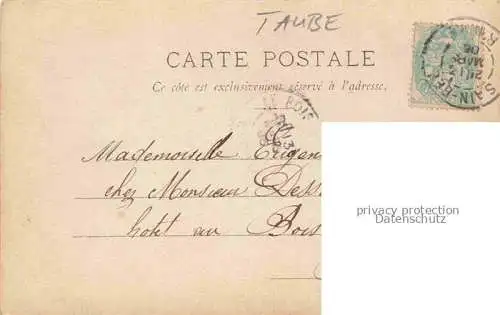 TAUBE
CARTE POSTALE
Ce côté est exclusivement réservé à l'adresse.
Mademoiselle
chez Monsieur
hotel au Bois
privacy protection
Datenschutz